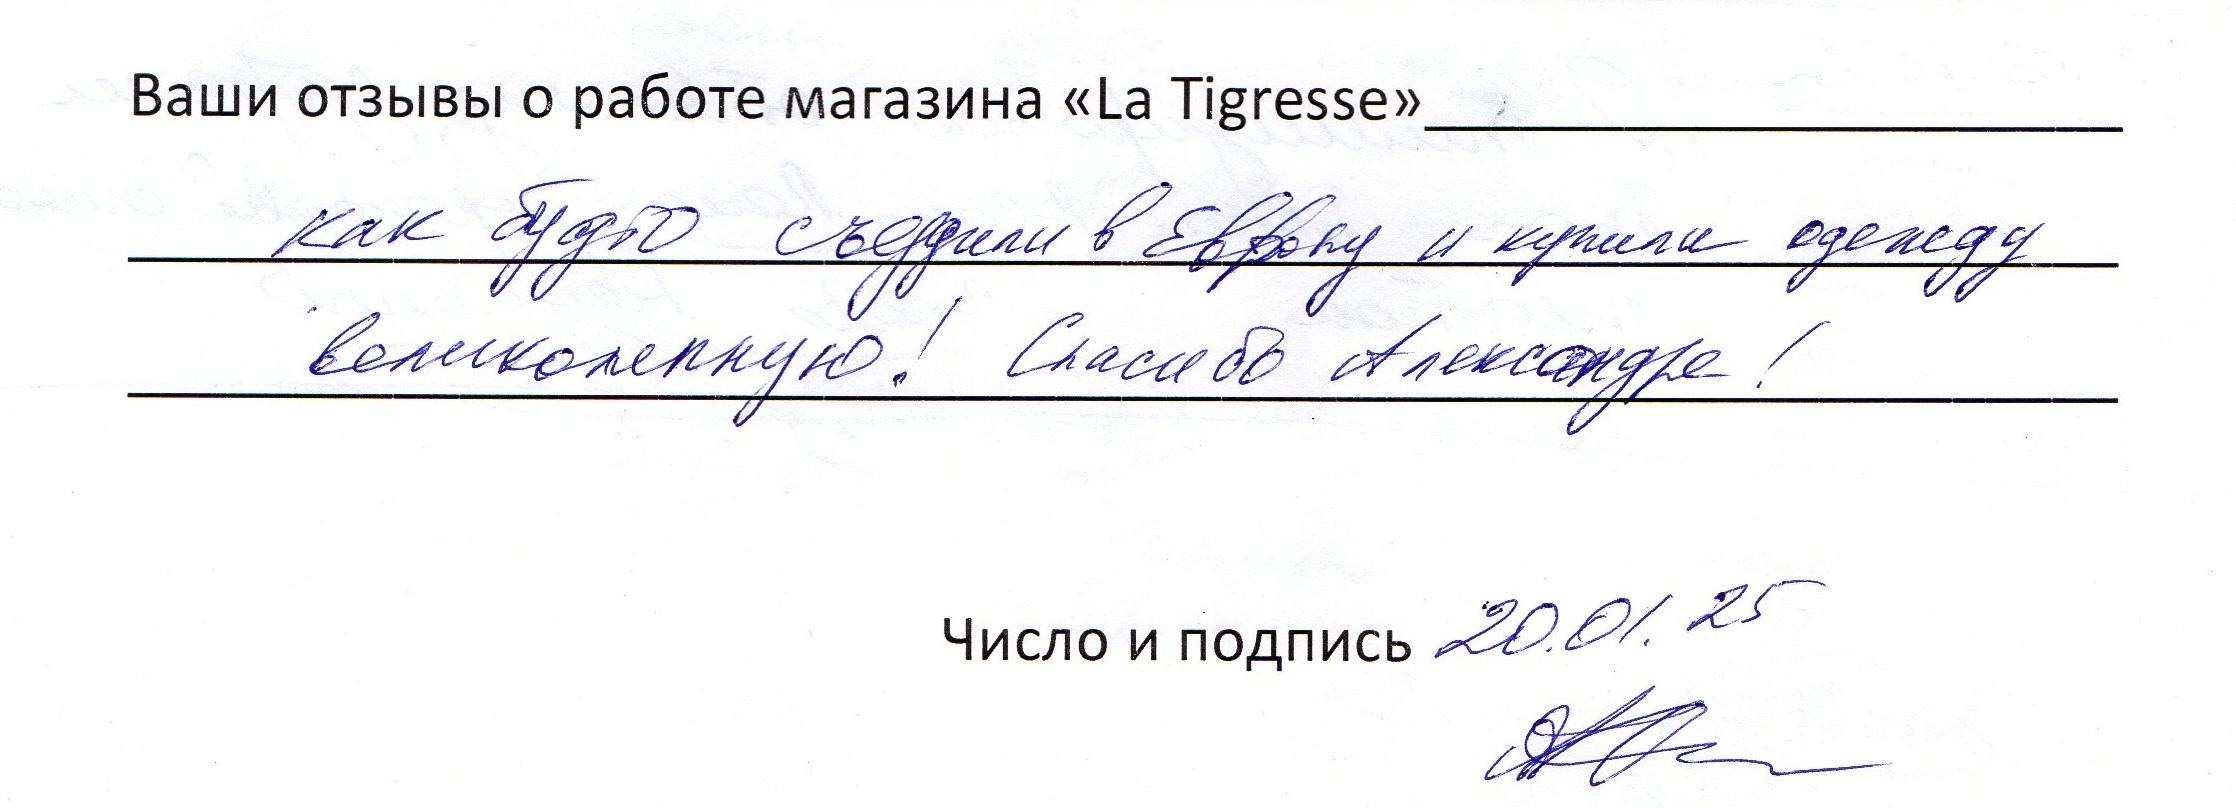 Ваши отзывы о работе магазина «La Tigresse»
как будто съездили в Европу и купили одежду
великолепную! Спасибо Александре!
Число и подпись 20.01.25